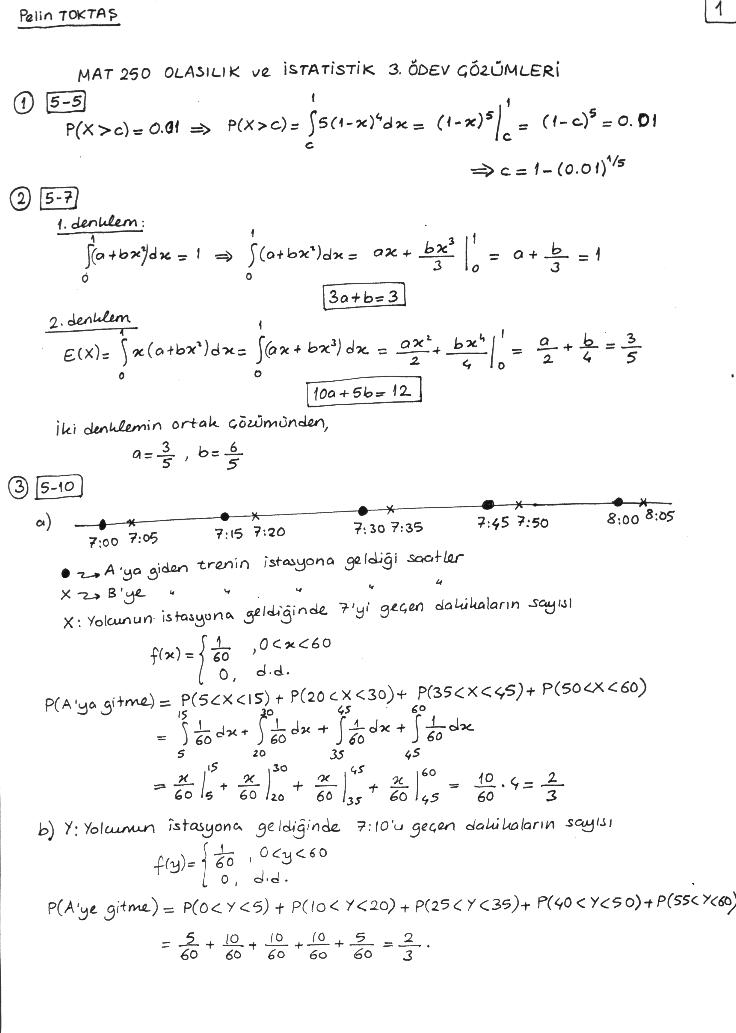 Pelin TOKTAŞ
1
MAT 250 OLASILIK ve İSTATİSTİK 3. ÖDEV ÇÖZÜMLERİ
① 5-5
P(X>c) = 0.01 ⇒ P(X>c) = ∫_c^1 5(1-x)⁴dx = (1-x)⁵|_c^1 = (1-c)⁵ = 0.01
⇒ c = 1-(0.01)^1/5
② 5-7
1. denklem:
∫_0^1 (a+bx²)dx = 1 ⇒ ∫_0^1 (a+bx²)dx = ax + bx³/3 |_0^1 = a + b/3 = 1
3a+b=3
2. denklem
E(X) = ∫_0^1 x(a+bx²)dx = ∫_0^1 (ax+bx³)dx = ax²/2 + bx⁴/4 |_0^1 = a/2 + b/4 = 3/5
10a+5b=12
İki denklemin ortak çözümünden,
a = 3/5 , b = 6/5
③ 5-10
a)
7:00 7:05 7:15 7:20 7:30 7:35 7:45 7:50 8:00 8:05
● ⇝ A'ya giden trenin istasyona geldiği saatler
X ⇝ B'ye " " " " "
X: Yolcunun istasyona geldiğinde 7'yi geçen dakikaların sayısı
f(x) = { 1/60 , 0<x<60
0, d.d.
P(A'ya gitme) = P(5<X<15) + P(20<X<30) + P(35<X<45) + P(50<X<60)
= ∫_5^15 1/60 dx + ∫_20^30 1/60 dx + ∫_35^45 1/60 dx + ∫_45^60 1/60 dx
= x/60 |_5^15 + x/60 |_20^30 + x/60 |_35^45 + x/60 |_45^60 = 10/60 · 4 = 2/3
b) Y: Yolcunun istasyona geldiğinde 7:10'u geçen dakikaların sayısı
f(y) = { 1/60 , 0<y<60
0, d.d.
P(A'ye gitme) = P(0<Y<5) + P(10<Y<20) + P(25<Y<35) + P(40<Y<50) + P(55<Y<60)
= 5/60 + 10/60 + 10/60 + 10/60 + 5/60 = 2/3 .